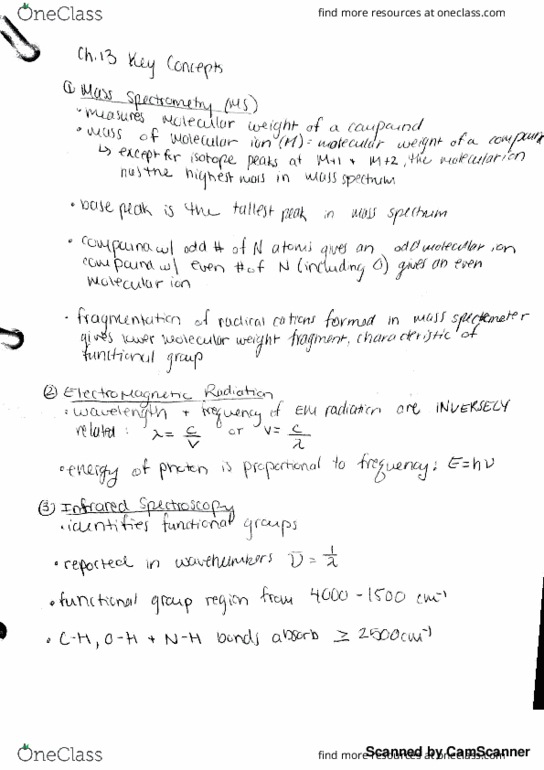 OneClass
find more resources at oneclass.com
Ch.13 Key Concepts
① Mass Spectrometry (MS)
• measures molecular weight of a compound
• mass of molecular ion (M) = molecular weight of a compound
↳ except for isotope peaks at M+1 + M+2, the molecular ion
has the highest mass in mass spectrum
• base peak is the tallest peak in mass spectrum
• compound w/ odd # of N atoms gives an odd molecular ion
compound w/ even # of N (including 0) gives an even
molecular ion
• fragmentation of radical cations formed in mass spectrometer
gives lower molecular weight fragment, characteristic of
functional group
② Electromagnetic Radiation
• wavelength + frequency of EM radiation are INVERSELY
related: λ = c/v or v = c/λ
• energy of photon is proportional to frequency: E=hν
③ Infrared Spectroscopy
• identifies functional groups
• reported in wavenumbers ṽ = 1/λ
• functional group region from 4000 - 1500 cm⁻¹
• C-H, O-H + N-H bonds absorb ≥ 2500cm⁻¹
OneClass
find more resources at oneclass.com
Scanned by CamScanner